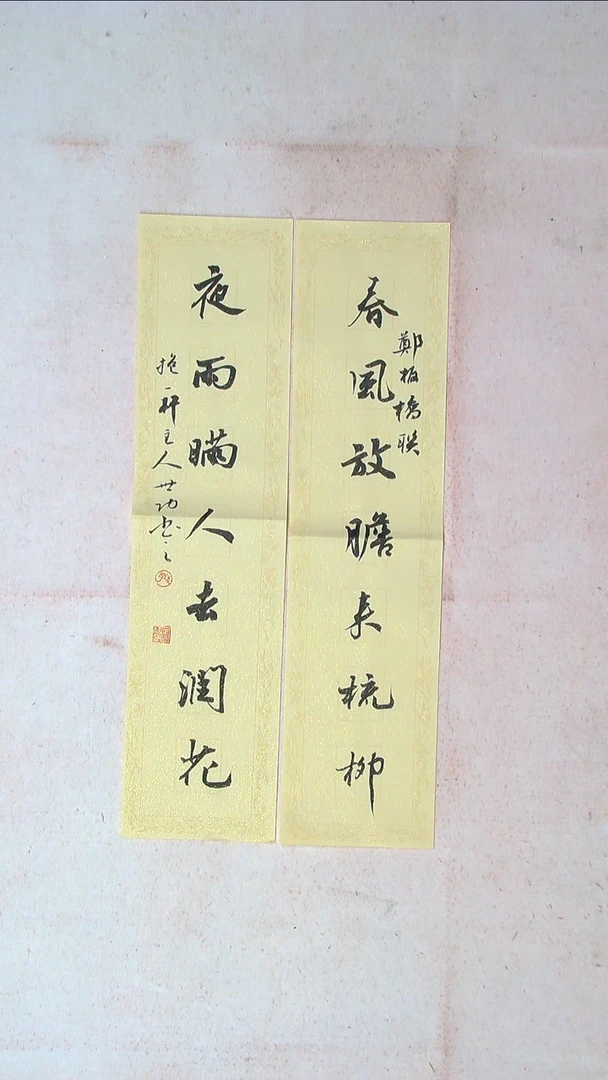 春風放膽来梳柳
鄭板橋联
夜雨瞞人去潤花
抱一軒主人世功书之